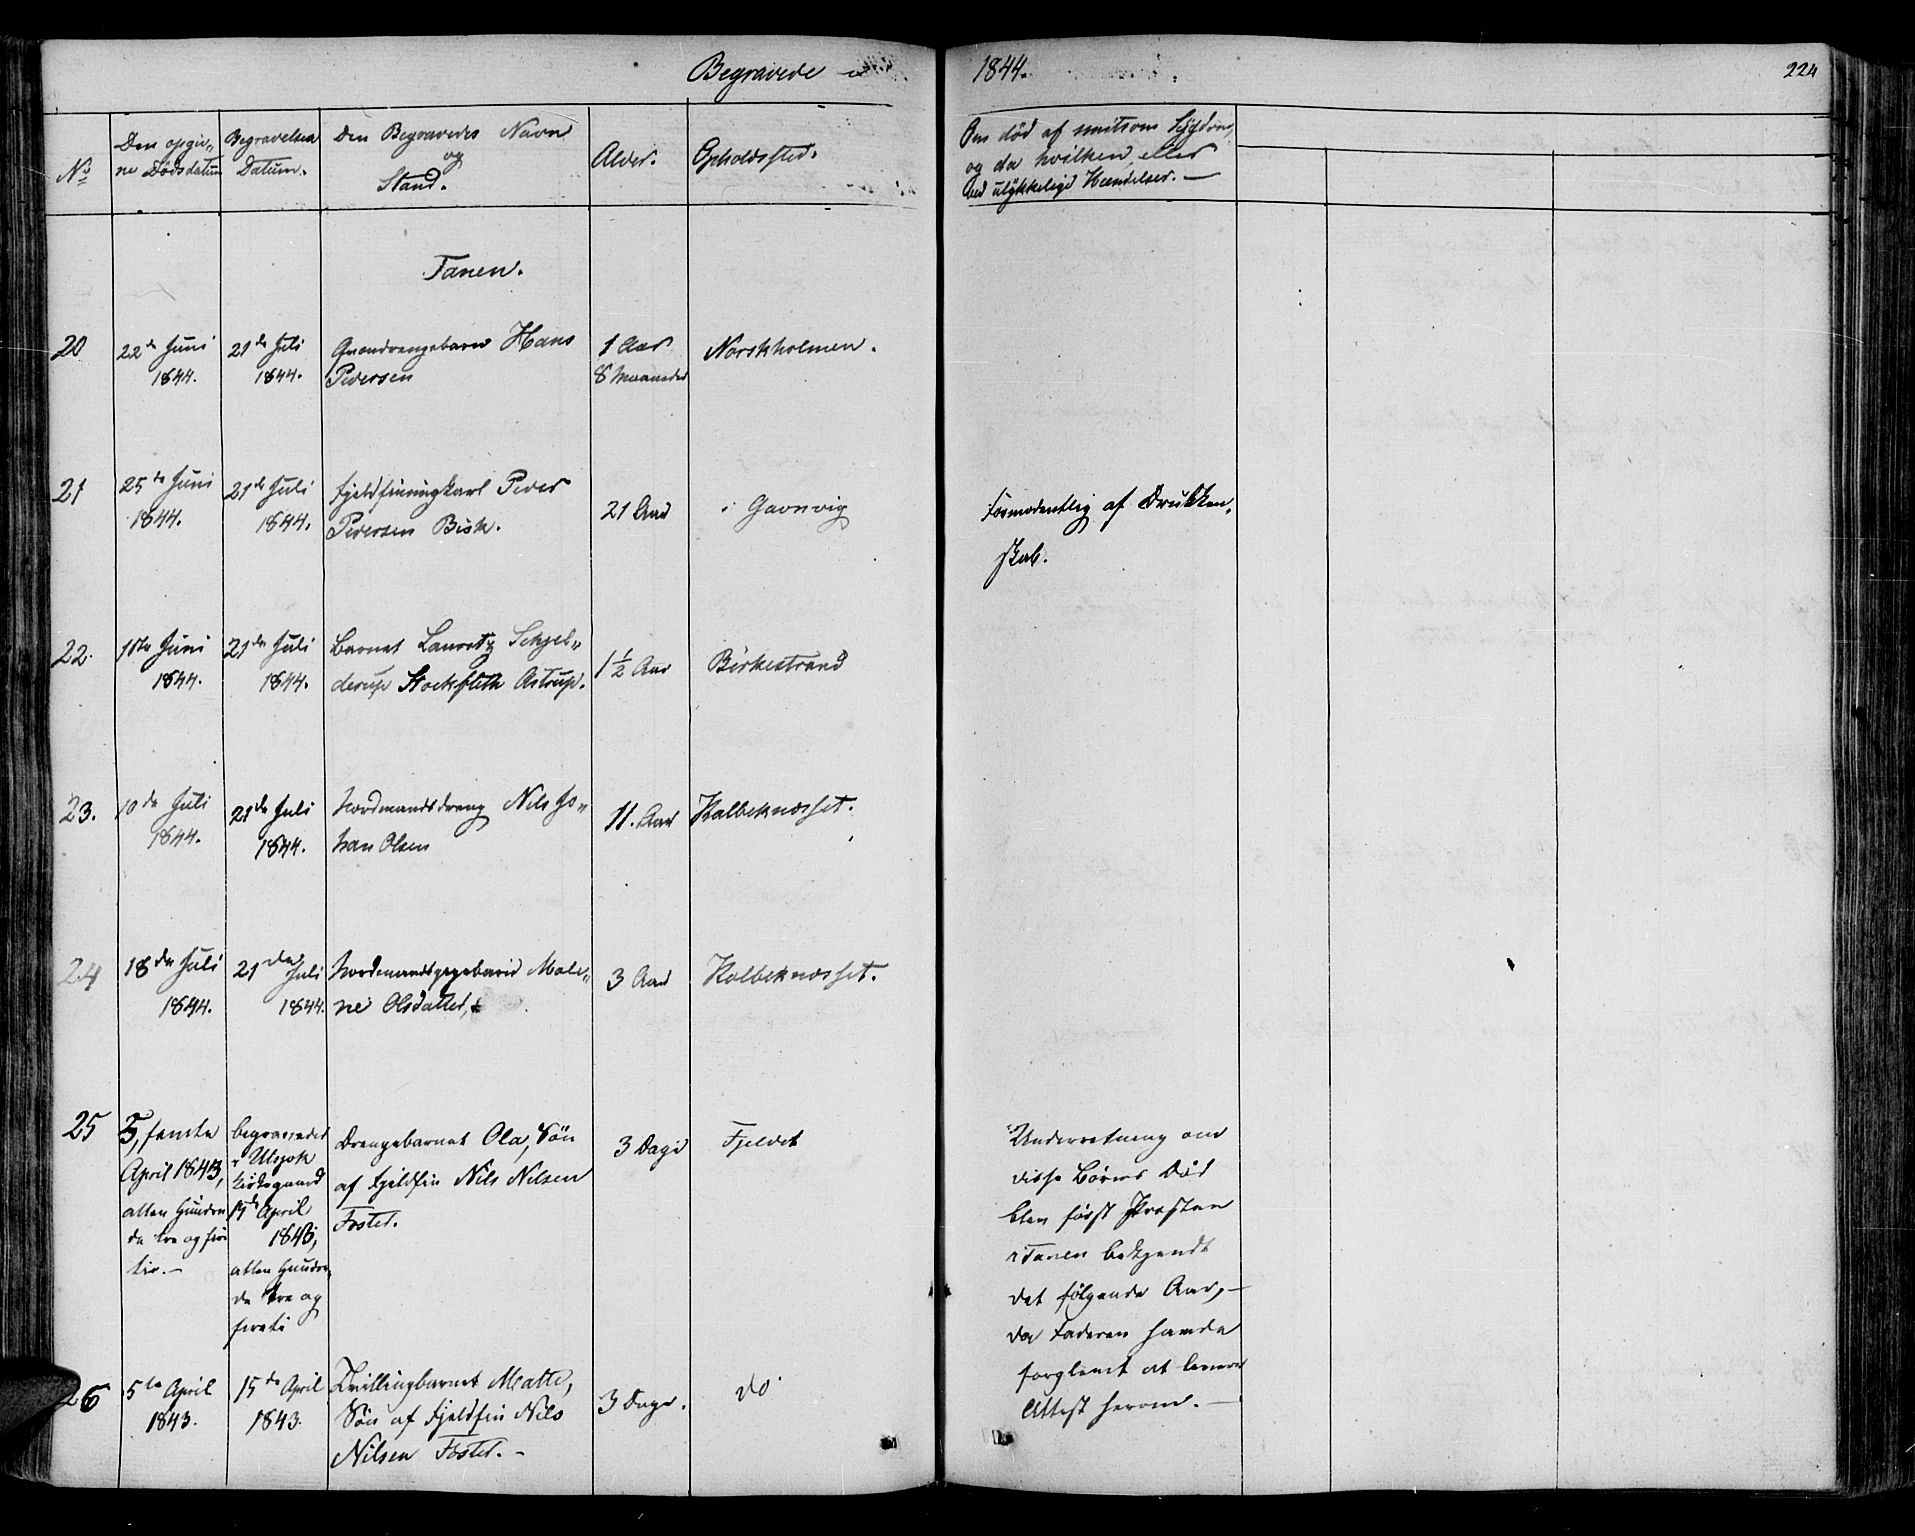 Begravede
1844.
224
No
Den opgiv-
ne Dødsdatum
Begravelses
Datum.
Den Begravedes Navn
og
Stand.
Alder.
Opholdssted.
Om død af smitsom Sygdom,
og da hvilken, eller
ved ulykkelige Hændelser. —
Tanen.
20
22de Juni
1844.
21de Juli
1844.
Hans
Pedersen
1 Aar
8 Maaneder
Norskholmen.
21
25de Juni
1844.
21de Juli
1844.
Peder
Pedersen Bisk.
21 Aar
i Gavnvig
Formodentlig af Drukken-
skab.
22.
Juni
1844.
21de Juli
1844.
Barnet Lauretz Schjel-
derup Stockfleth Astrup.
1½ Aar
Birkestrand
23.
10de Juli
1844.
21de Juli
1844.
Nordmandsdreng Nils Jo-
han Olsen
11. Aar
Kalbeknæsset.
24
18de Juli
1844.
21de Juli
1844.
Male-
ne Olsdatter,
3 Aar
Kolbeknæsset.
25
5, femte
April 1843,
atten Hundre-
de tre og fire-
tio.—
begravedes
i Utsjok
Kirkegaard
April
1843,
atten Hundre-
de tre og
fireti
Drengebarnet Ola, Søn
af Fjeldfin Nils Nilsen
Foster.
3 Dage
Fjeldet
Underretning om
disse Børns Død
blev først Præsten
i Tanen bekjendt
det følgende Aar, —
da Faderen havde
forglemt at levere
Attest herom. —
26
5te April
1843.
15de April
1843.
Tvillingbarnet Matte,
Søn af Fjeldfin Nils
Nilsen Foster. —
3 Dage.
do